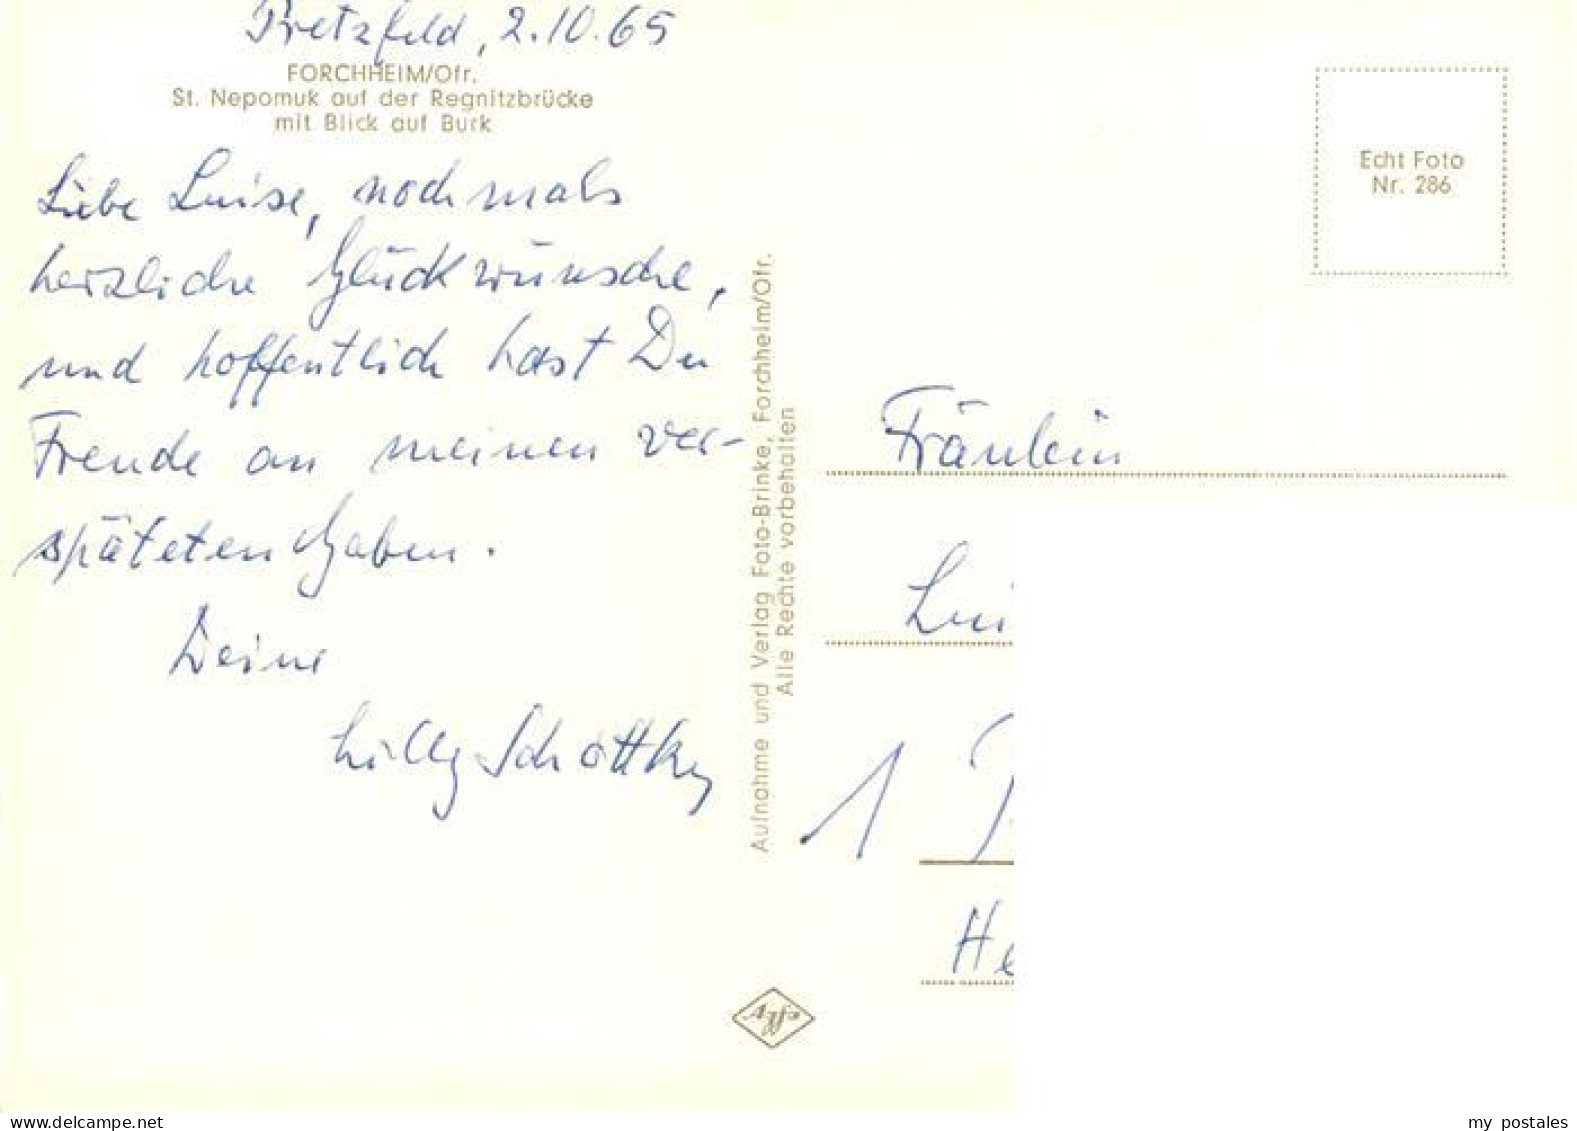 Pretzfeld, 2.10.65
FORCHHEIM/Ofr.
St. Nepomuk auf der Regnitzbrücke
mit Blick auf Burk
Liebe Luise, nochmals
herzliche Glückwünsche,
und hoffentlich hast Du
Freude an meinen ver-
späteten Gaben.
Deine
Lilly Schottky
Aufnahme und Verlag Foto-Brinke, Forchheim/Ofr.
Alle Rechte vorbehalten
Echt Foto
Nr. 286
Fräulein
Lui
1
He
my postales